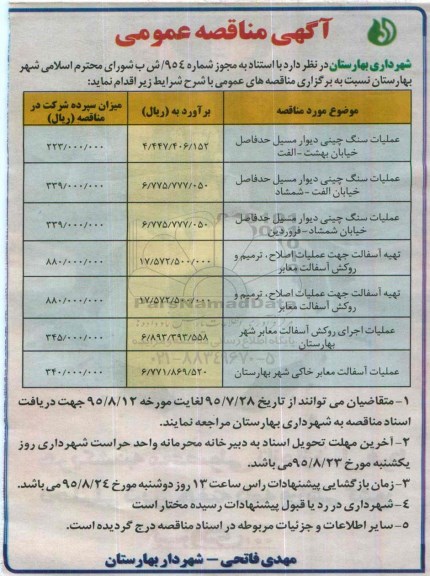 آگهی مناقصه عمومی
شهرداری بهارستان در نظر دارد با استناد به مجوز شماره ۹۵۴/ش ب شورای محترم اسلامی شهر
بهارستان نسبت به برگزاری مناقصه های عمومی با شرح شرایط زیر اقدام نماید:
موضوع مورد مناقصه
برآورد به (ریال)
میزان سپرده شرکت در
مناقصه (ریال)
عملیات سنگ چینی دیوار مسیل حدفاصل
خیابان بهشت -الفت
۴/۴۴۷/۴۰۶/۱۵۲
۲۲۳/۰۰۰/۰۰۰
عملیات سنگ چینی دیوار مسیل حدفاصل
خیابان الفت -شمشاد
۶/۷۷۵/۷۷۷/۰۵۰
۳۳۹/۰۰۰/۰۰۰
عملیات سنگ چینی دیوار مسیل حدفاصل
خیابان شمشاد-فروردین
۶/۷۷۵/۷۷۷/۰۵۰
۳۳۹/۰۰۰/۰۰۰
تهیه آسفالت جهت عملیات اصلاح، ترمیم و
روکش آسفالت معابر
۱۷/۵۷۲/۵۰۰/۰۰۰
۸۸۰/۰۰۰/۰۰۰
تهیه آسفالت جهت عملیات اصلاح، ترمیم و
روکش آسفالت معابر
۱۷/۵۷۲/۵۰۰/۰۰۰
۸۸۰/۰۰۰/۰۰۰
عملیات اجرای روکش آسفالت معابر شهر
بهارستان
۶/۸۹۳/۳۹۳/۵۵۸
۳۴۵/۰۰۰/۰۰۰
عملیات آسفالت معابر خاکی شهر بهارستان
۶/۷۷۱/۸۶۹/۵۲۰
۳۴۰/۰۰۰/۰۰۰
ParsNamadData
۰۲۱-۸۸۳۴۹۶۷۰-۵
۱- متقاضیان می توانند از تاریخ ۹۵/۷/۲۸ لغایت مورخه ۹۵/۸/۱۲ جهت دریافت
اسناد مناقصه به شهرداری بهارستان مراجعه نمایند.
۲- آخرین مهلت تحویل اسناد به دبیرخانه محرمانه واحد حراست شهرداری روز
یکشنبه مورخ ۹۵/۸/۲۳ می باشد.
۳- زمان بازگشایی پیشنهادات راس ساعت ۱۳ روز دوشنبه مورخ ۹۵/۸/۲۴ می باشد.
۴- شهرداری در رد یا قبول پیشنهادات رسیده مختار است
۵- سایر اطلاعات و جزئیات مربوطه در اسناد مناقصه درج گردیده است.
مهدی فاتحی - شهردار بهارستان